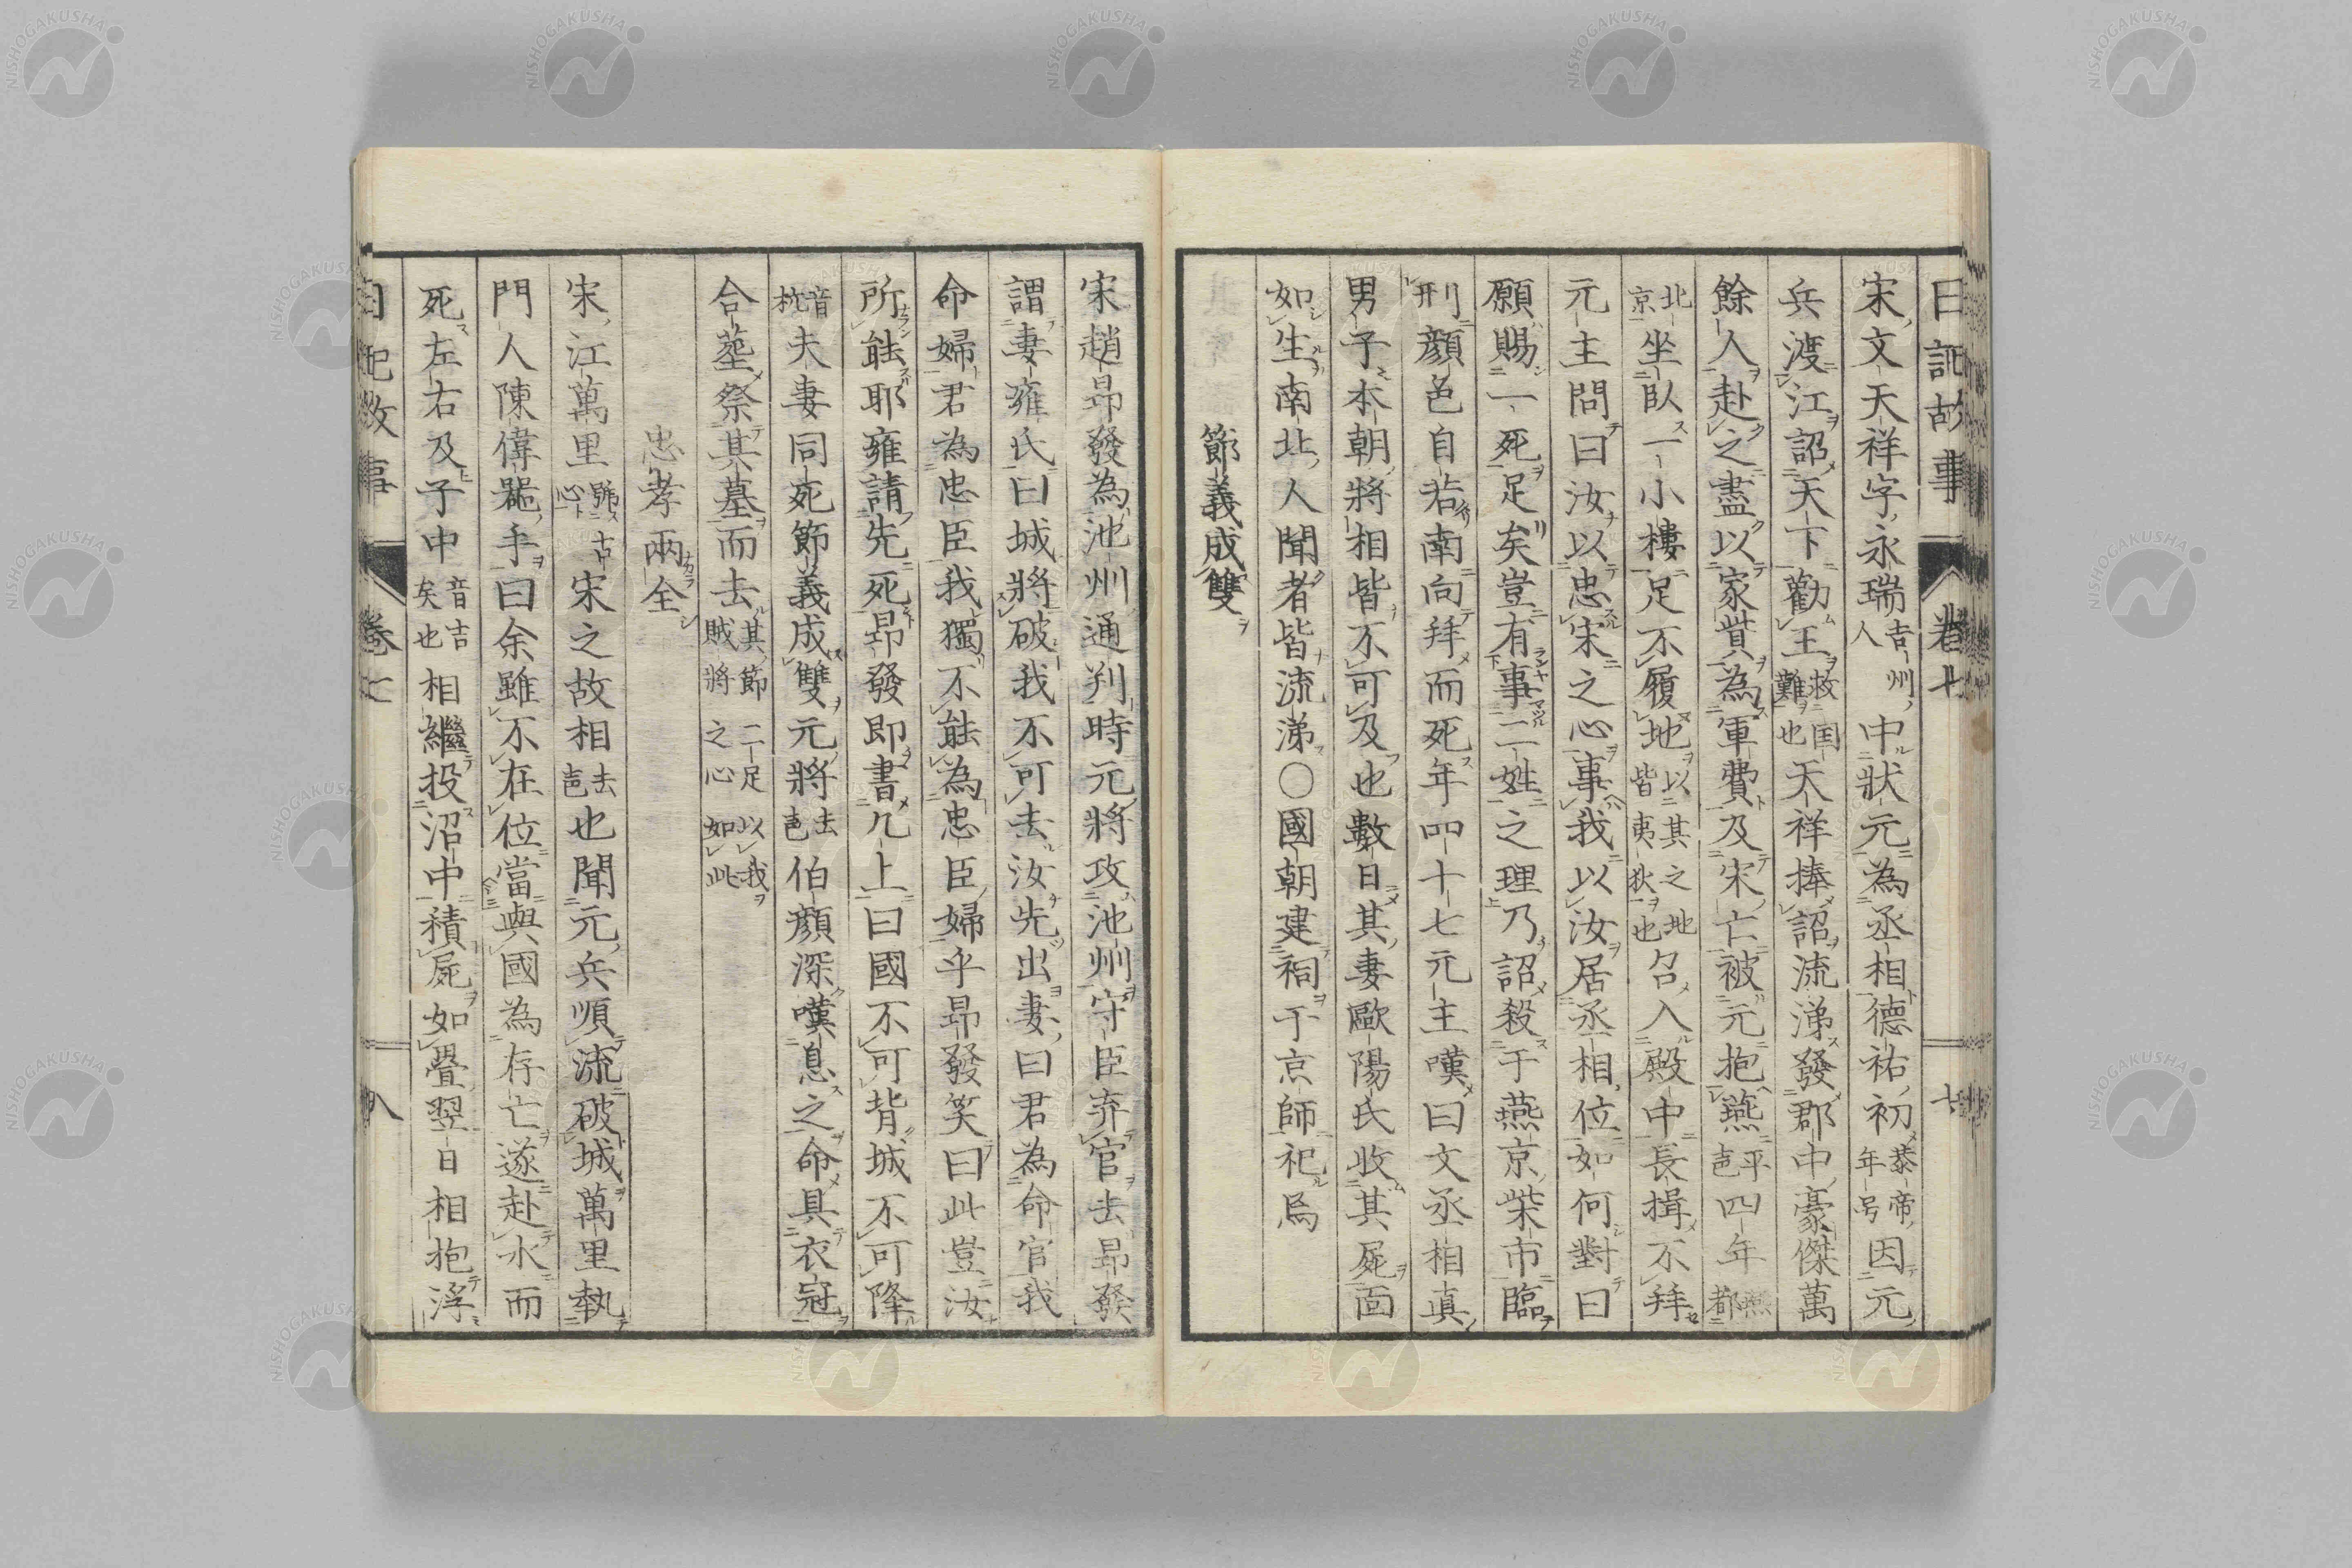 日記故事 卷七 七
宋文天祥字永瑞吉州人中狀元為丞相德祐初恭帝年号因元
兵渡江詔天下勸王救国難也天祥捧詔流涕發郡中豪傑萬
餘人赴之盡以家貲為軍費及宋亡被元抱燕平声四年燕都
北京坐臥一小樓足不履地以其之地皆夷狄也召入殿中長揖不拜
元主問曰汝以忠宋之心事我以汝居丞相位如何對曰
願賜一死足矣豈有事二姓之理乃詔殺于燕京柴市臨
刑顔色自若南向拜而死年四十七元主嘆曰文丞相真
男子本朝將相皆不可及也數日其妻歐陽氏收其屍面
如生南北人聞者皆流涕〇國朝建祠于京師祀焉
節義成雙
宋趙昻發為池州通判時元將攻池州守臣弃官去昻發
謂妻雍氏曰城將破我不可去汝先出妻曰君為命官我
命婦君為忠臣我獨不能為忠臣婦乎昻發笑曰此豈汝
所能耶雍請先死昻發即書几上曰國不可背城不可降
音枕夫妻同死節義成雙元將去声伯顔深嘆息之命具衣冠
合塟祭其墓而去其節二足以我賊將之心如此
忠孝兩全
宋江萬里號古心宋之故相去声也聞元兵順流破城萬里執
門人陳偉噐手曰余雖不在位當與國為存亡遂赴水而
死左右及子中音吉矣也相繼投沼中積屍如疊翌日相抱浮
日記故事 卷七 八
NISHOGAKUSHA